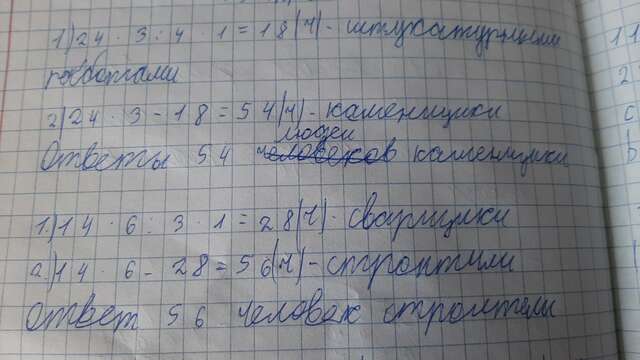 1) 24 · 3 : 4 · 1 = 18 (ч) - штукатурными
работами
2) 24 · 3 - 18 = 54 (ч) - каменщики
людей
Ответы 54 человеков каменщики
1) 14 · 6 : 3 · 1 = 28 (ч) - сварщики
а) 14 · 6 - 28 = 56 (ч) - строртили
Ответ 56 человек строители